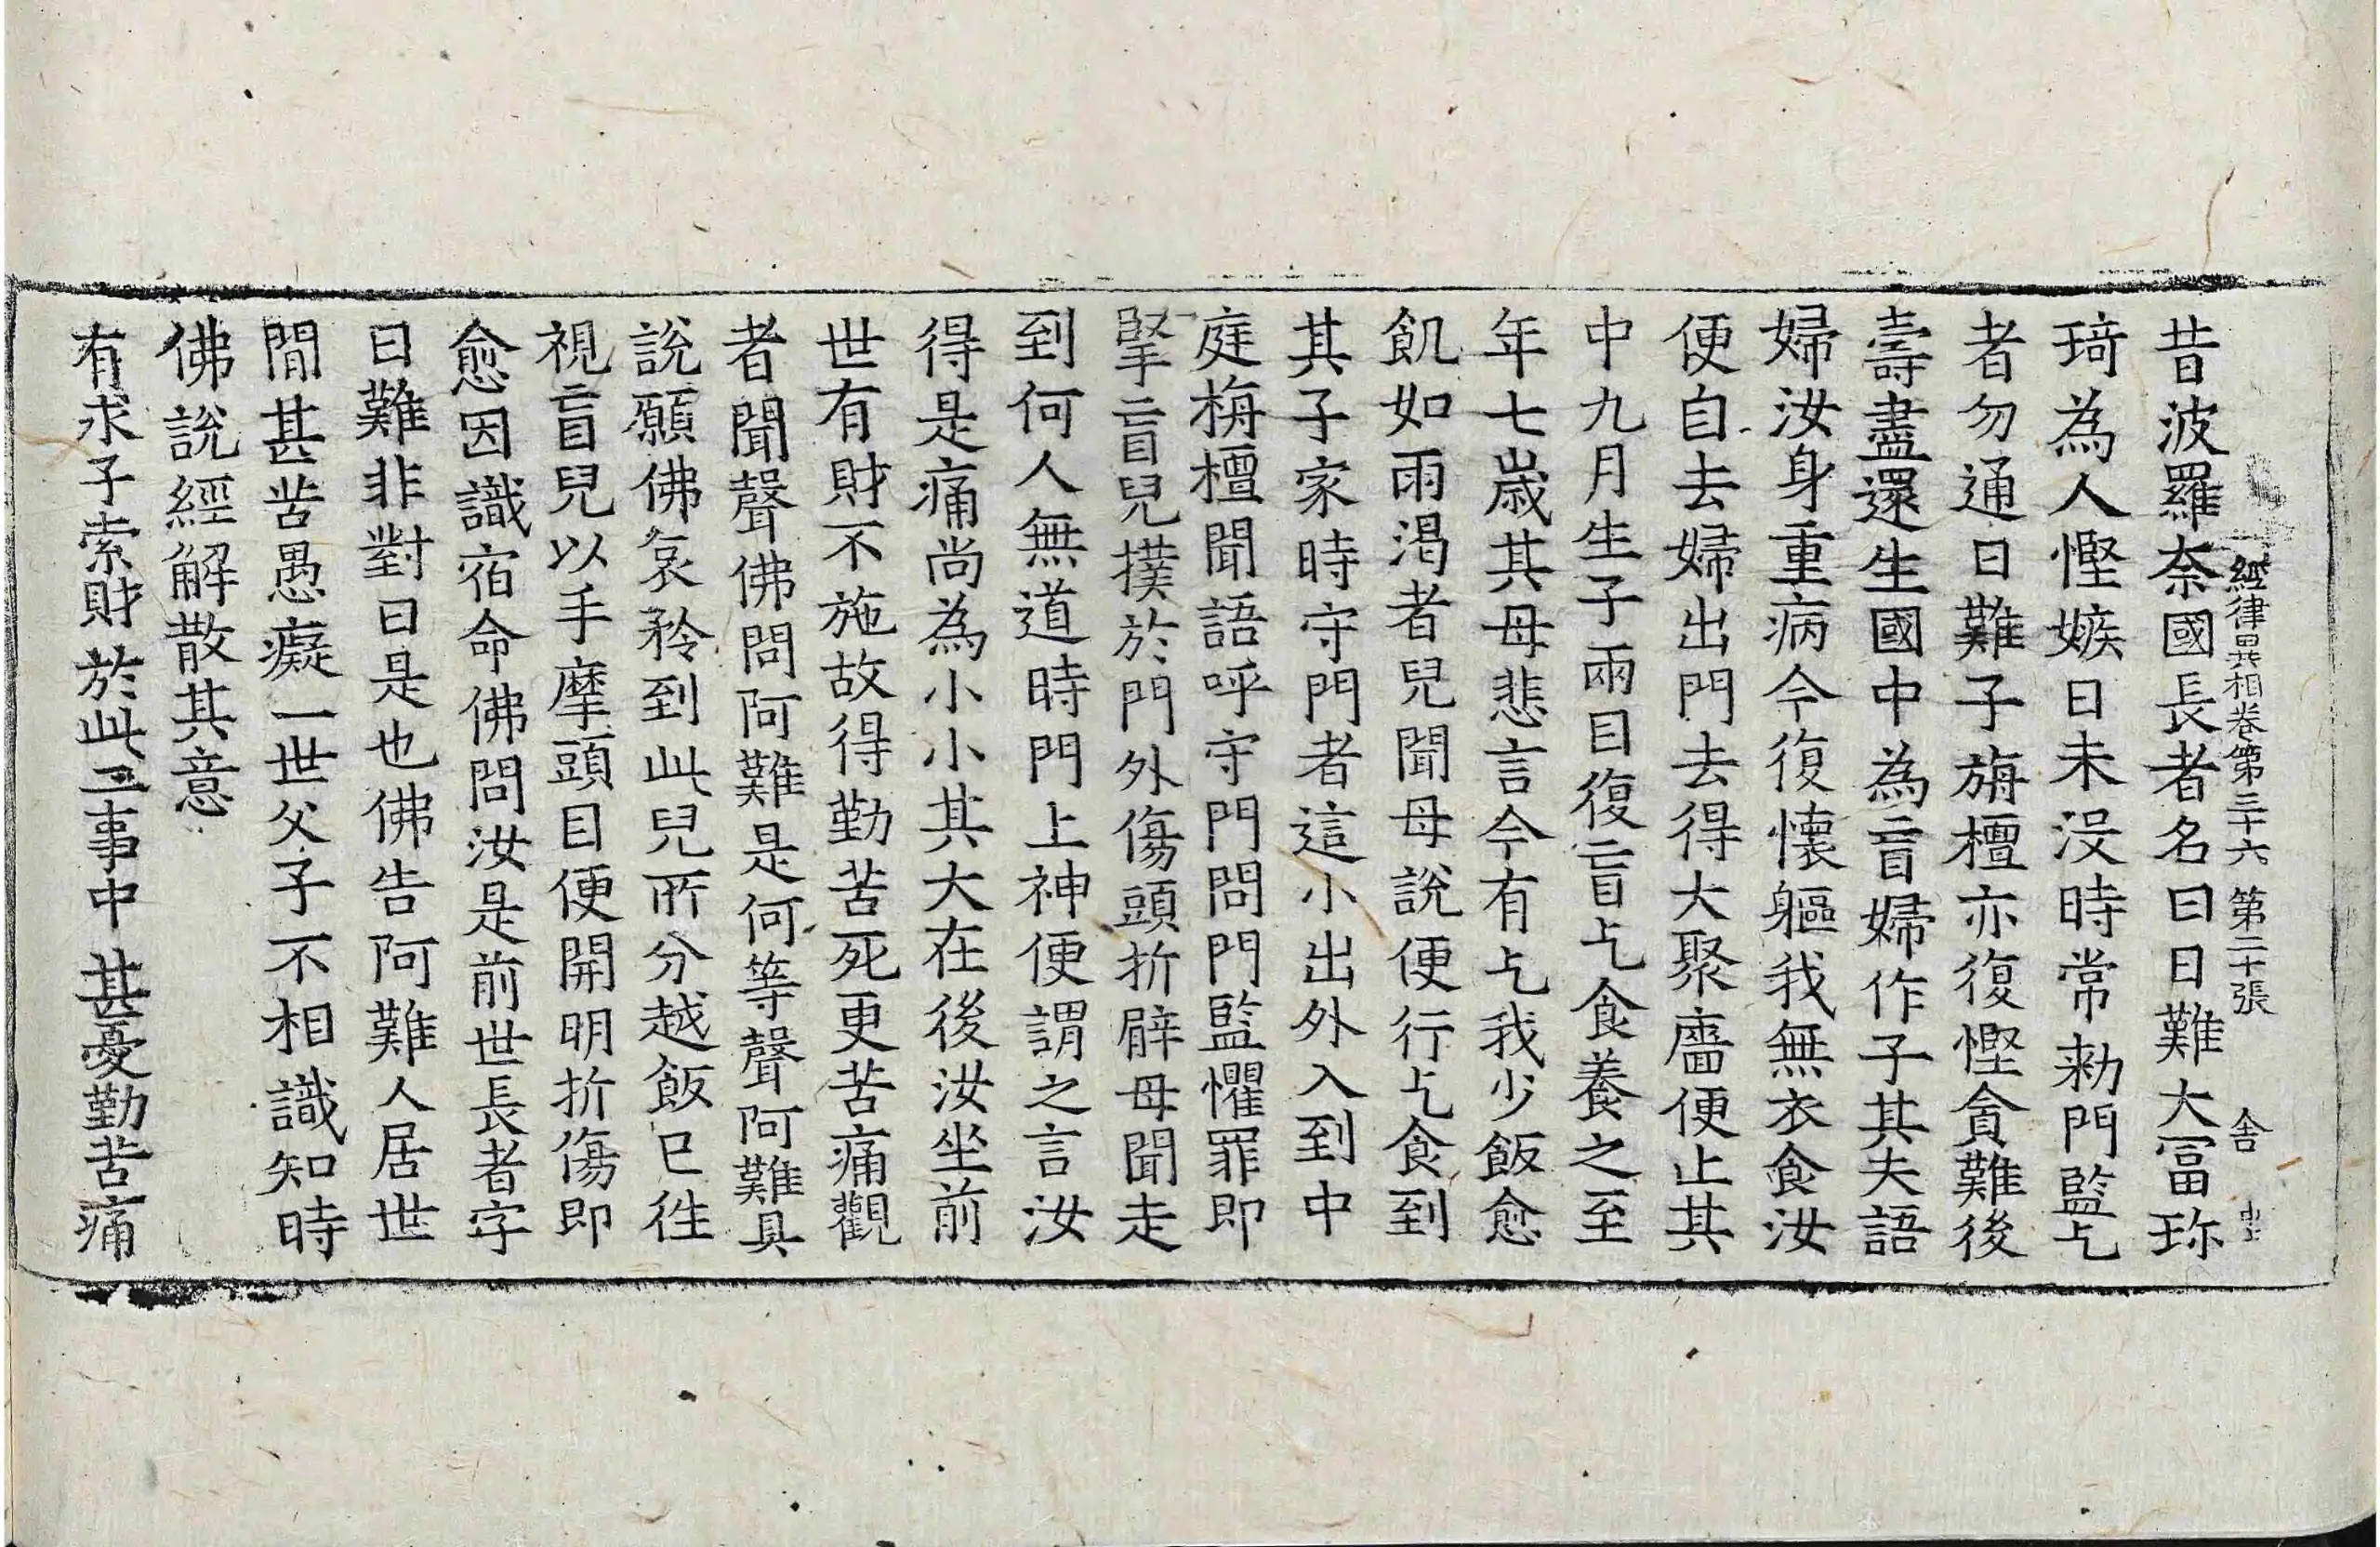 經律異相卷第三十六 第二十張 舍
昔波羅奈國長者名曰日難大冨珎
琦為人慳嫉日未沒時常勑門監乞
者勿通日難子旃檀亦復慳貪難後
壽盡還生國中為盲婦作子其夫語
婦汝身重病今復懷軀我無衣食汝
便自去婦出門去得大聚廧便止其
中九月生子兩目復盲乞食養之至
年七歲其母悲言今有乞我少飯愈
飢如雨渴者兒聞母說便行乞食到
其子家時守門者這小出外入到中
庭栴檀聞語呼守門問門監懼罪即
掔盲兒撲於門外傷頭折臂母聞走
到何人無道時門上神便謂之言汝
得是痛尚為小小其大在後汝坐前
世有財不施故得勤苦死更苦痛觀
者聞聲佛問阿難是何等聲阿難具
說願佛哀矜到此兒所分越飯已徃
視盲兒以手摩頭目便開明折傷即
愈因識宿命佛問汝是前世長者字
日難非對曰是也佛告阿難人居世
間甚苦愚癡一世父子不相識知時
佛說經解散其意
有求子索財於此三事中甚憂勤苦痛